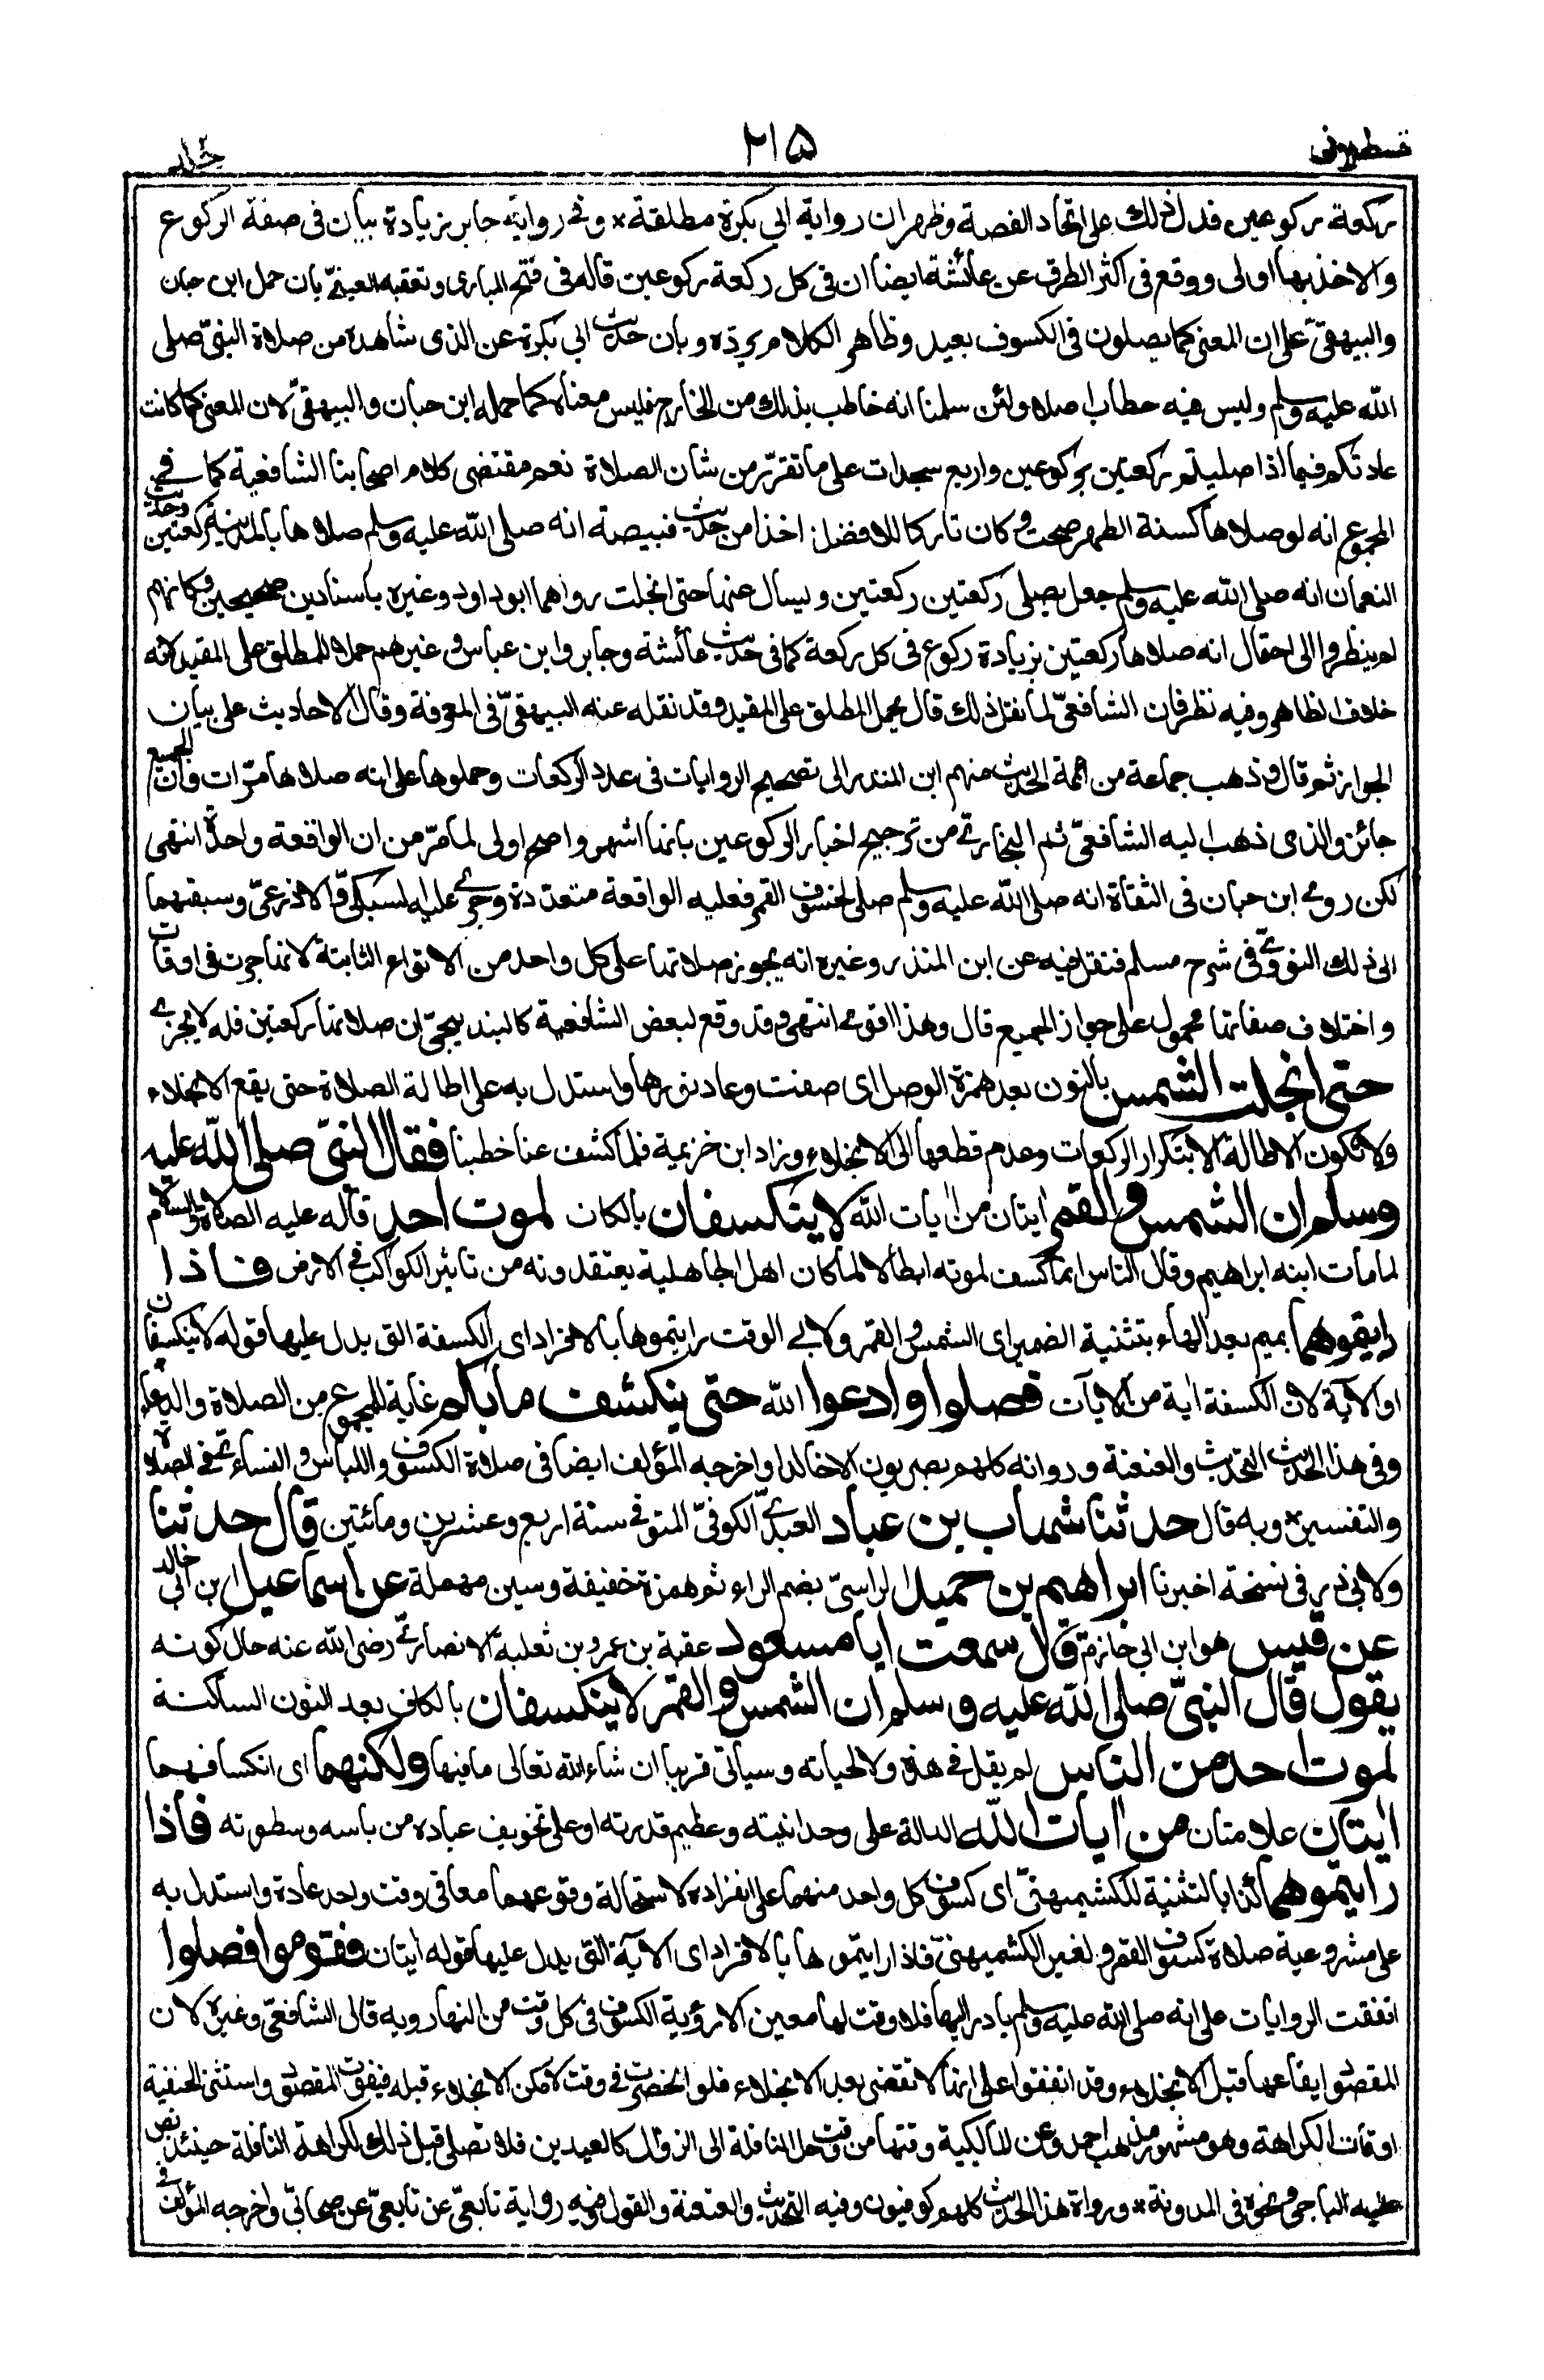 قسطلانی ٢١٥ جلد ٢
ركعة ركوعين فدل ذلك على اتحاد القصة وظهر ان رواية ابي بكرة مطلقة * وفي رواية جابر زيادة بيان في صفة الركوع
والاخذ بها اولى ووقع في اكثر الطرق عن عائشة ايضا ان في كل ركعة ركوعين قاله في فتح الباري وتعقبه العيني بان حمل ابن حبان
والبيهقي على ان المعنى كما يصلون في الكسوف بعيد وظاهر الكلام يرده وبان حديث ابي بكرة عن الذي شاهده من صلاة النبي صلى
الله عليه وسلم وليس فيه خطاب اصلا ولئن سلمنا انه خاطب بذلك من الخارج فليس معناه كما حمله ابن حبان والبيهقي لان المعنى كما كانت
عادتكم فيما اذا صليتم ركعتين بركوعين واربع سجدات على ما تقرر من شان الصلاة نعم مقتضى كلام اصحابنا الشافعية كما في
المجموع انه لو صلاها كسنة الظهر صحت وكان تاركا للافضل اخذا من حديث قبيصة انه صلى الله عليه وسلم صلاها بالمدينة ركعتين وحديث
النعمان انه صلى الله عليه وسلم جعل يصلي ركعتين ركعتين ويسال عنها حتى انجلت رواهما ابو داود وغيره باسنادين صحيحين وكانهم
لم ينظروا الى احتمال انه صلاها ركعتين بزيادة ركوع في كل ركعة كما في حديث عائشة وجابر وابن عباس وغيرهم حملا للمطلق على المقيد لانه
خلاف الظاهر وفيه نظر فان الشافعي لما نقل ذلك قال يحمل المطلق على المقيد وقد نقله عنه البيهقي في المعرفة وقال الاحاديث على بيان
الجواز ثم قال وذهب جماعة من ائمة الحديث منهم ابن المنذر الى تصحيح الروايات في عدد الركعات وحملوها على انه صلاها مرّات وان الجميع
جائز والذي ذهب اليه الشافعي ثم البخاري من ترجيح اخبار الركوعين بانها اشهر واصح اولى لما مرّ من ان الواقعة واحدة انتهى
لكن روى ابن حبان في الثقاة انه صلى الله عليه وسلم صلى لخسوف القمر فعليه الواقعة متعددة وجرى عليه السبكي والاذرعي وسبقهما
الى ذلك النووي في شرح مسلم فنقل فيه عن ابن المنذر وغيره انه يجوز صلاتها على كل واحد من الانواع الثابتة لانها جرت في اوقات
واختلاف صفاتها محمول على جواز الجميع قال وهذا اقوى انتهى وقد وقع لبعض الشافعية كالبندنيجي ان صلاتها ركعتين فله لا يجزئ
حتى انجلت الشمس بالنون بعد همزة الوصل اي صفت وعاد نورها واستدل به على اطالة الصلاة حتى يقع الانجلاء
ولا تكون الاطالة الا بتكرار الركعات وعدم قطعها الى الانجلاء وزاد ابن خزيمة فلما كشف عنا خطبنا فقال النبي صلى الله عليه
وسلم ان الشمس والقمر ايتان من ايات الله لا ينكسفان بالكاف لموت احد قاله عليه الصلاة والسلام
لما مات ابنه ابراهيم وقال الناس انما كسفت لموته ابطالا لما كان اهل الجاهلية يعتقدونه من تاثير الكواكب في الارض فاذا
رايتموهما بميم بعد الهاء بتثنية الضمير اي الشمس والقمر ولابي الوقت رايتموها بالافراد اي الكسفة التي يدل عليها قوله لا ينكسفان
او الاية لان الكسفة اية من الايات فصلوا وادعوا الله حتى ينكشف ما بكم غاية للمجموع من الصلاة والدعاء
وفي هذا الحديث التحديث والعنعنة ورواته كلهم بصريون الا خالدا واخرجه المؤلف ايضا في صلاة الكسوف واللباس والنسائي في الصلاة
والتفسير * وبه قال حدثنا شهاب بن عباد العبدي الكوفي المتوفى سنة اربع وعشرين ومائتين قال حدثنا
ولابي ذر في نسخة اخبرنا ابراهيم بن حميد الراسي بضم الراء ثم همزة خفيفة وسين مهملة عن اسماعيل ابن ابي خالد
عن قيس هو ابن ابي حازم قال سمعت ابا مسعود عقبة بن عمرو بن ثعلبة الانصاري رضي الله عنه حال كونه
يقول قال النبي صلى الله عليه وسلم ان الشمس والقمر لا ينكسفان بالكاف بعد النون الساكنة
لموت احد من الناس لم يقل في هذه ولا لحياته وسياتي قريبا ان شاء الله تعالى ما فيها ولكنهما اي انكسافهما
ايتان علامتان من ايات الله الدالة على وحدانيته وعظيم قدرته او على تخويف عباده من باسه وسطوته فاذا
رايتموهما كذا بالتثنية للكشميهني اي كسوف كل واحد منهما على انفراده لاستحالة وقوعهما معا في وقت واحد عادة واستدل به
على مشروعية صلاة كسوف القمر ولغير الكشميهني فاذا رايتموها بالافراد اي الاية التي يدل عليها قوله ايتان فقوموا فصلوا
اتفقت الروايات على انه صلى الله عليه وسلم بادر اليها فلا وقت لها معين الا رؤية الكسوف في كل وقت من النهار وبه قال الشافعي وغيره لان
المقصود ايقاعها قبل الانجلاء وقد اتفقوا على انها لا تقضى بعد الانجلاء فلو انحصرت في وقت لامكن الانجلاء قبله فيفوت المقصود واستثنى الحنفية
اوقات الكراهة وهو مشهور مذهب احمد وعن المالكية وقتها من وقت حل النافلة الى الزوال كالعيدين فلا تصلى قبل ذلك لكراهة النافلة حينئذ نص
عليه الباجي ونحوه في المدونة * ورواة هذا الحديث كلهم كوفيون وفيه التحديث والعنعنة والقول وفيه رواية تابعي عن تابعي عن صحابي واخرجه المؤلف في